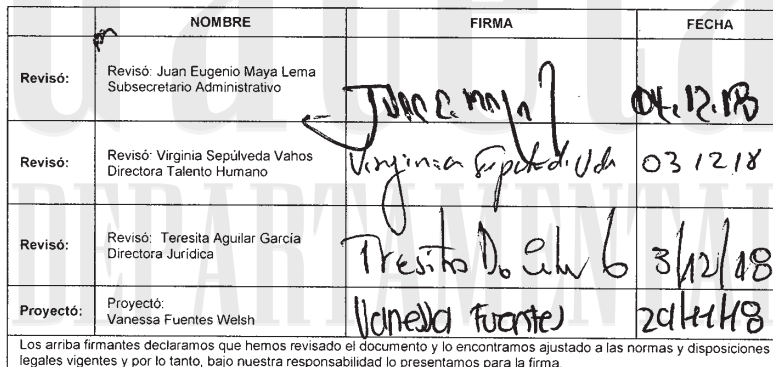 NOMBRE FIRMA FECHA
Revisó: Revisó: Juan Eugenio Maya Lema
Subsecretario Administrativo
Juan E. Maya 04.12.18
Revisó: Revisó: Virginia Sepúlveda Vahos
Directora Talento Humano
Virginia 03 12 18
Revisó: Revisó: Teresita Aguilar García
Directora Jurídica
3/12/18
Proyectó: Proyectó:
Vanessa Fuentes Welsh
Vanessa Fuentes 29/11/18
Los arriba firmantes declaramos que hemos revisado el documento y lo encontramos ajustado a las normas y disposiciones
legales vigentes y por lo tanto, bajo nuestra responsabilidad lo presentamos para la firma.
DEPARTAMENTAL